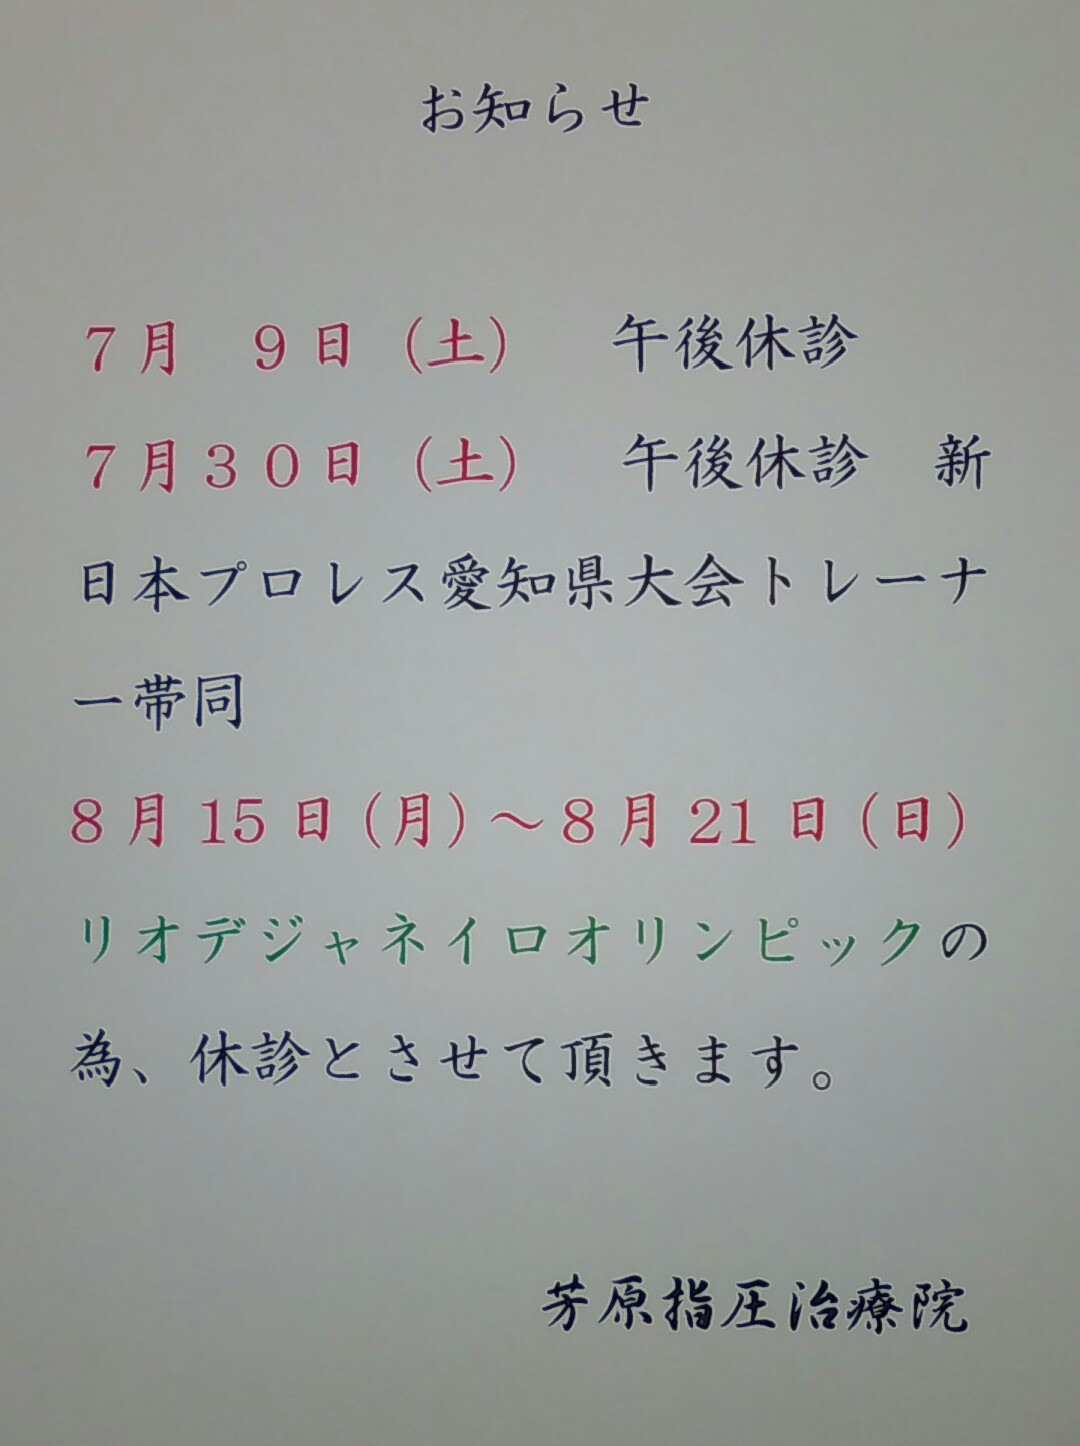 お知らせ
７月　９日（土）　午後休診
７月３０日（土）　午後休診　新
日本プロレス愛知県大会トレーナ
ー帯同
8月15日(月)～8月21日(日)
リオデジャネイロオリンピックの
為、休診とさせて頂きます。
芳原指圧治療院